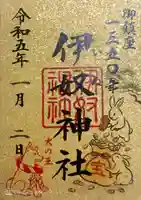 御鎮座
一三五〇年
伊奴神社
犬の王
令和五年一月二日